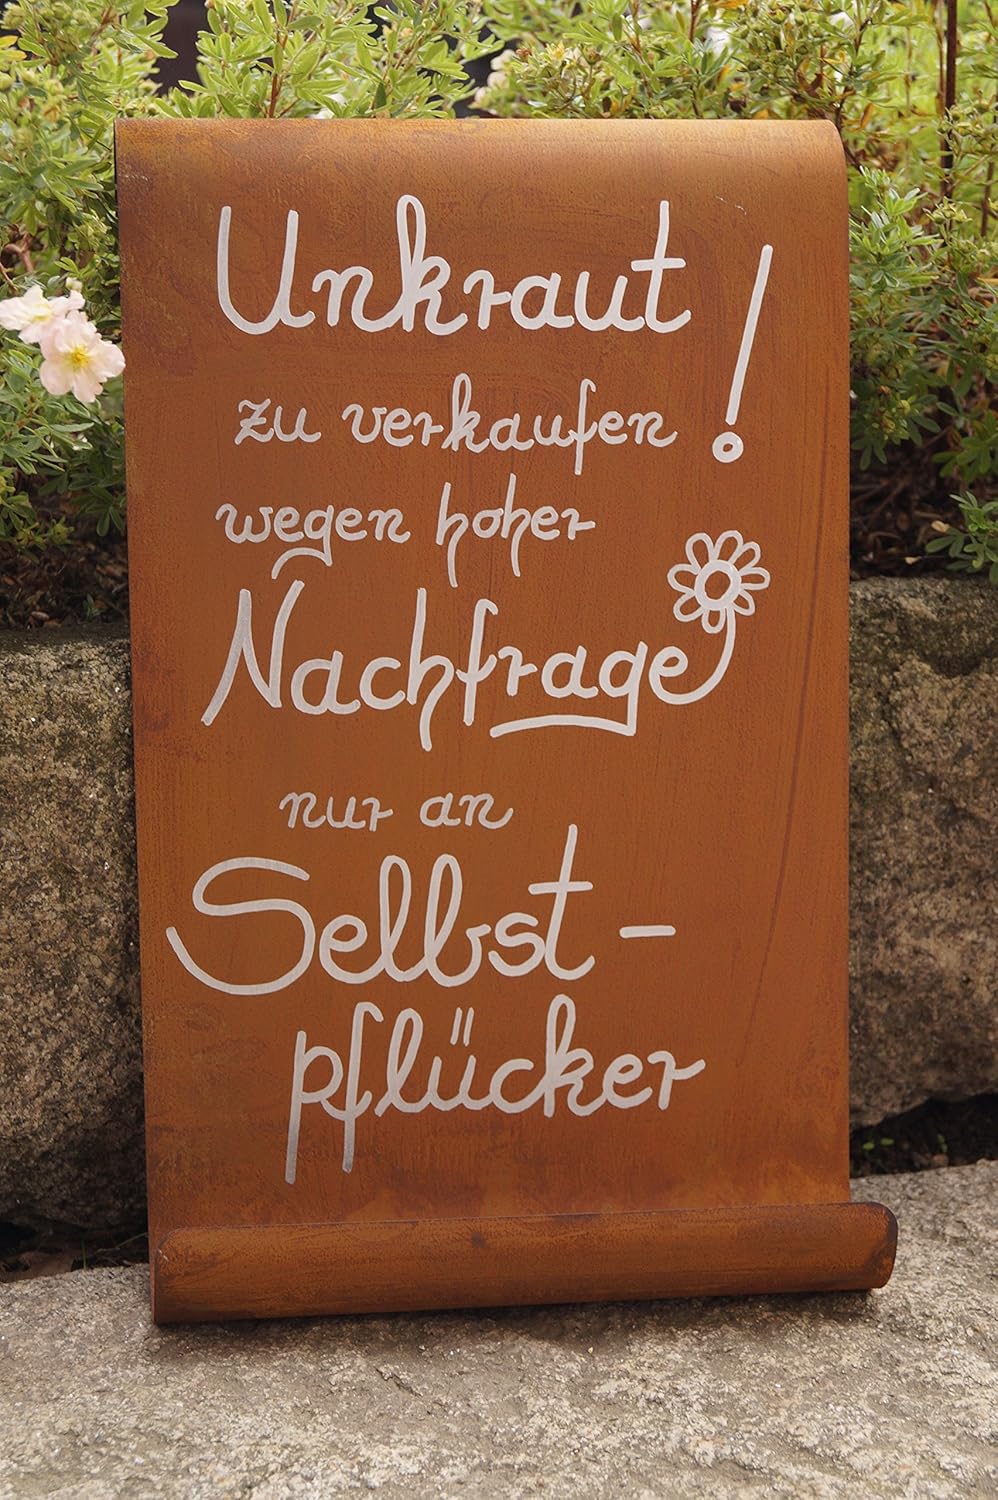 Unkraut!
zu verkaufen
wegen hoher
Nachfrage
nur an
Selbst-
pflücker